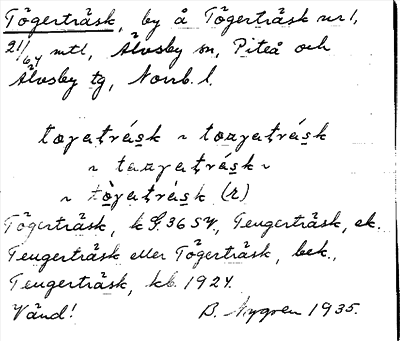 Tögerträsk, by å Tögerträsk nr 1,
21/64 mtl, Älvsby sn, Piteå och
Älvsby tg, Norrb. l.
tɷgatrásk ~ tɷŋgatrásk
~ taŋgatrásk ~
~ tògatràsk (r)
Tögerträsk, k 3654, Teugerträsk, ek.
Teugerträsk eller Tögerträsk, bek.,
Teugerträsk, kb. 1924.
Vänd! B. Nygren 1935.